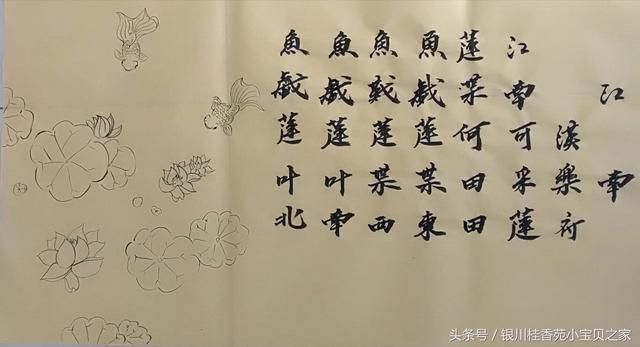 江南
漢樂府
江南可采蓮
蓮葉何田田
魚戲蓮葉東
魚戲蓮葉西
魚戲蓮叶南
魚戲蓮叶北
头条号 / 银川桂香苑小宝贝之家